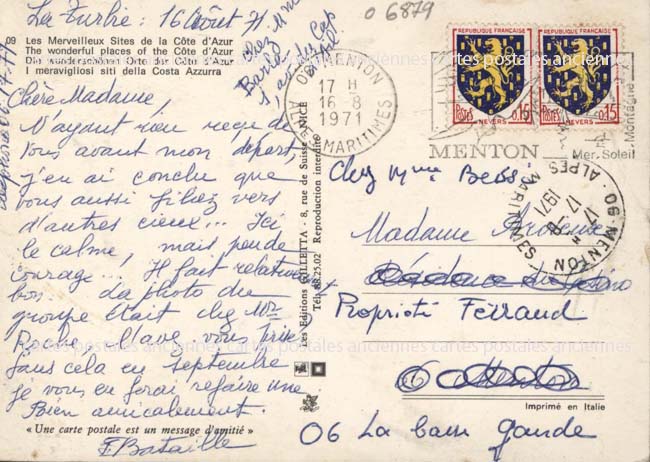 La Turbie : 16 Août 71
06879
09 Les Merveilleux Sites de la Côte d'Azur
The wonderful places of the Côte d'Azur
Die wunderschönen Orte der Côte d'Azur
I meravigliosi siti della Costa Azzurra
Chère Madame,
N'ayant rien reçu de
vous avant mon départ,
j'en ai conclu que
vous aussi filiez vers
d'autres cieux... Ici
le calme, mais peu de
courage... Il fait relativement
bon. La photo du
groupe était chez Mr
l'avez vous prise
sans cela en septembre
je vous en ferai refaire une
Bien amicalement.
F Bataille
« Une carte postale est un message d'amitié »
Les Editions GILLETTA - 8, rue de Suisse - NICE
Tél. 88.25.02 Reproduction interdite
REPUBLIQUE FRANÇAISE
POSTES 0,15
NEVERS
REPUBLIQUE FRANÇAISE
POSTES 0,15
NEVERS
06 MENTON
17 H
16-8
1971
ALPES MARITIMES
MENTON
Mer. Soleil
Montagne
06 MENTON
17 H
17-8
1971
ALPES MARITIMES
Chez Mme Bess
Madame
Propriété Ferraud
06
06 La
Imprimé en Italie
cartes postales anciennes cartes postales anciennes cartes postales anciennes